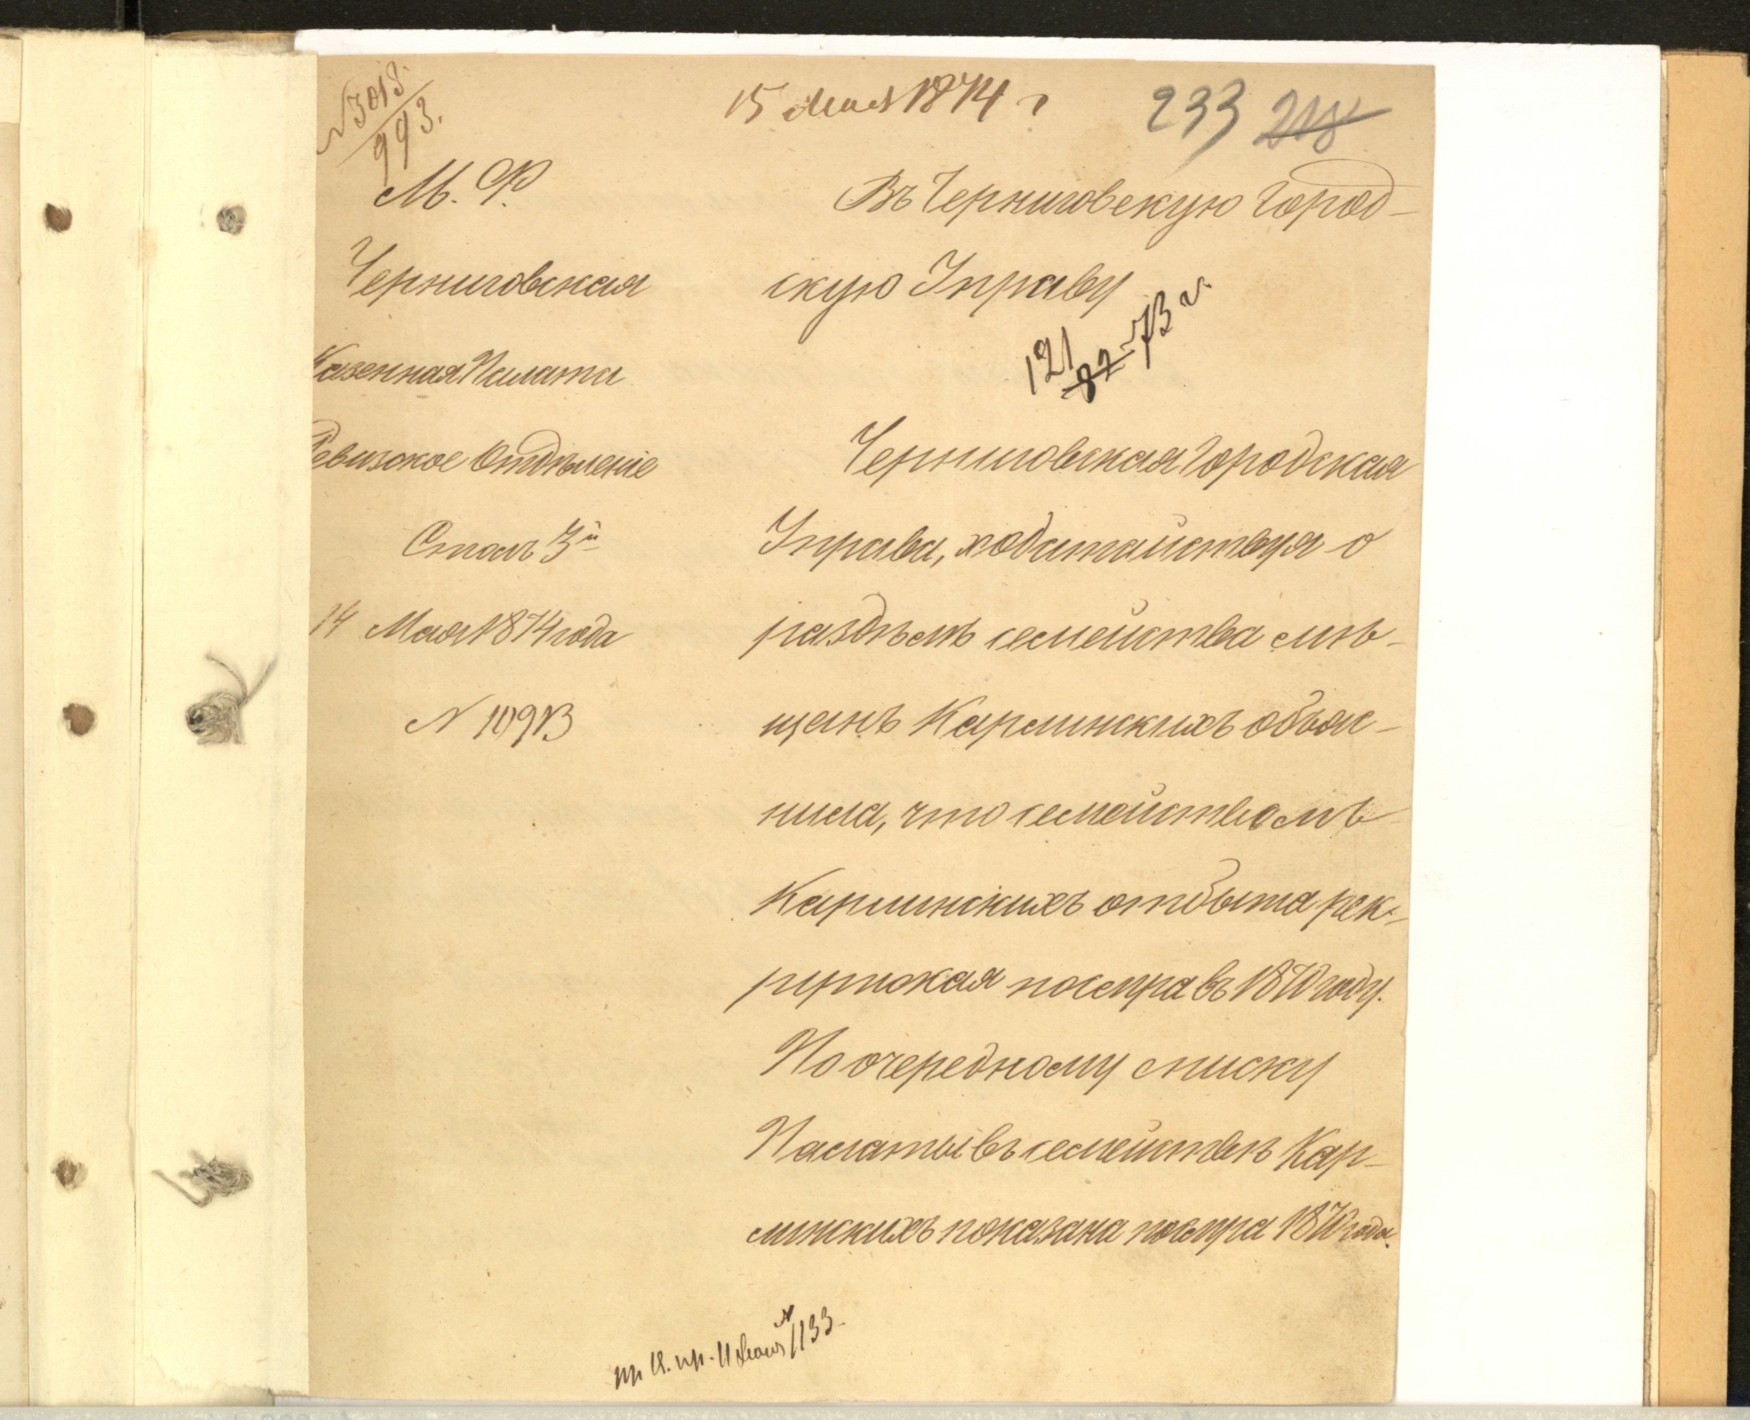 №3018
993.
15 Мая 1874 г
233 218
М. Ф.
Черниговская
Казенная Палата
Ревизское Отдѣленіе
Столъ 3й
14 Мая 1874 года
N 10913
Въ Черниговскую Город-
скую Управу
121
82 73 г.
Черниговская Городская
Управа, ходатайствуя о
раздѣлѣ семейства мѣ-
щанъ Карминскихъ объяс-
нила, что семействомъ
Карминскихъ отбыта рек-
рутская
въ 1870 году.
По очередному списку
Палаты въ семействѣ Кар-
минскихъ показана
1870 года.
11
1133.